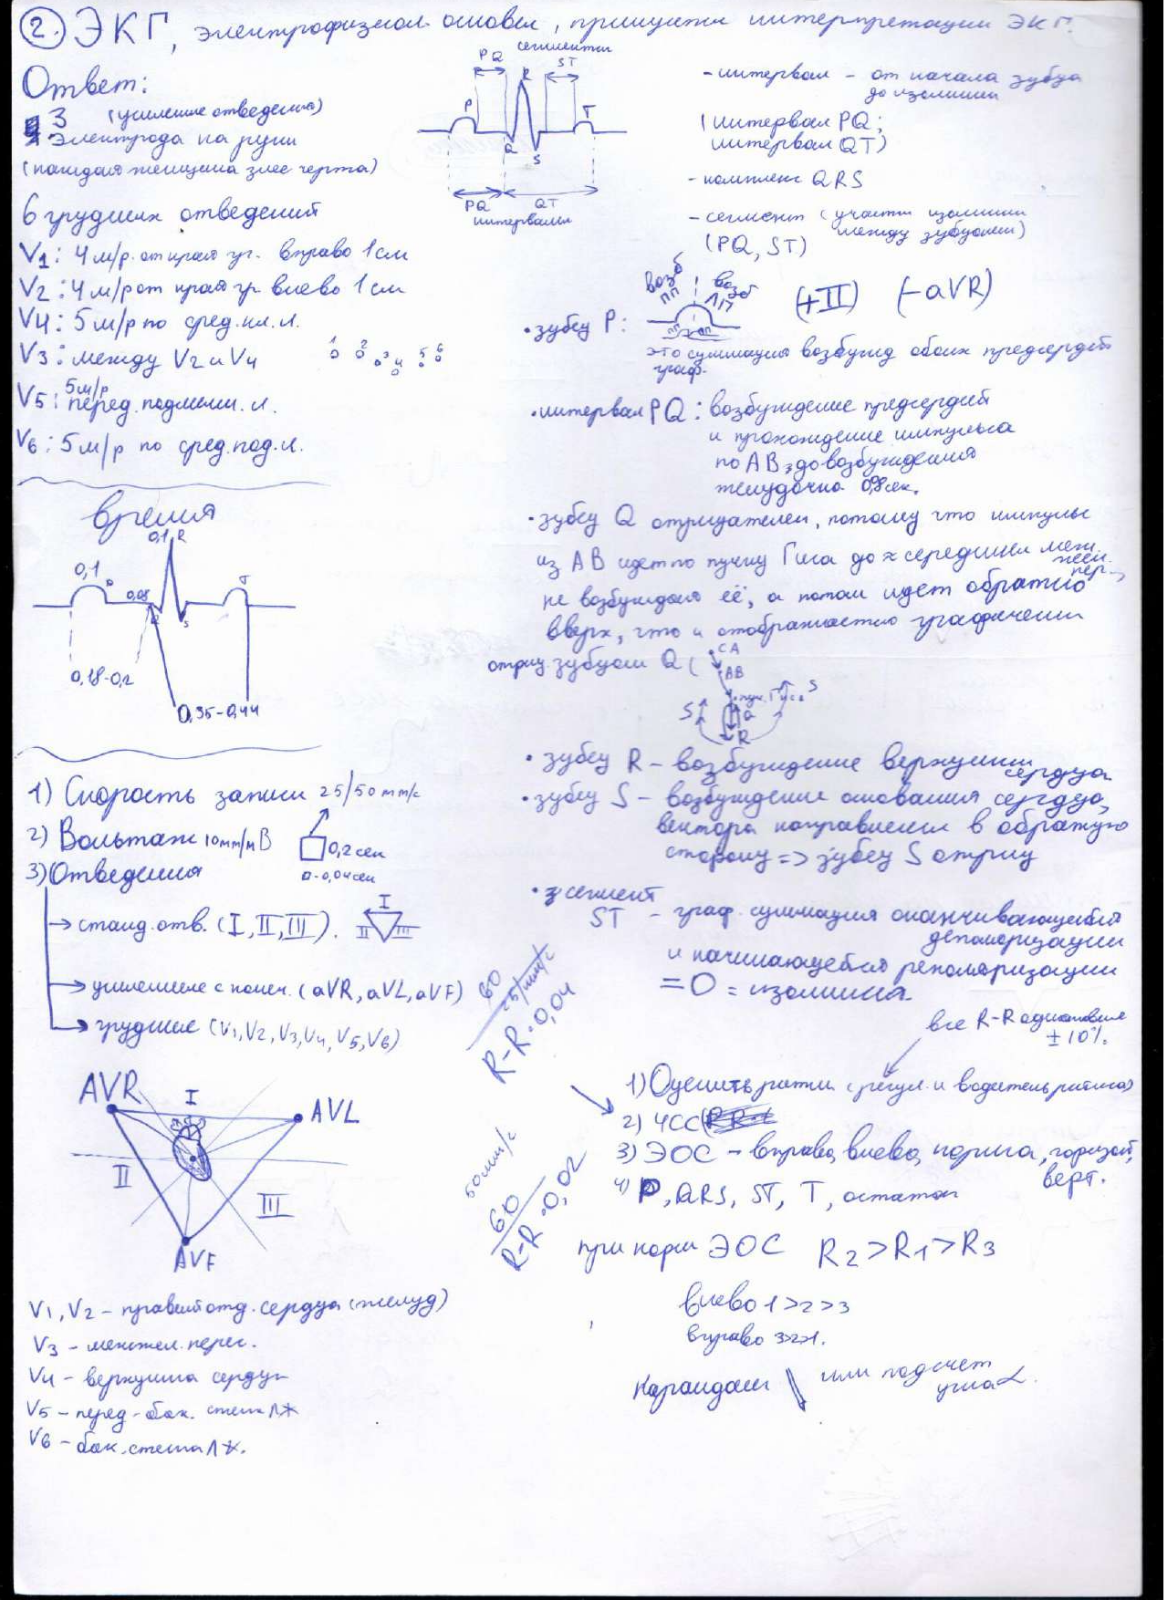 2. ЭКГ, электрофизиол. основы, принципы интерпретации ЭКГ.
Ответ:
3 (усиление отведения)
электрода на руки
(каждая женщина злее черта)
6 грудных отведений
V1: 4 м/р. от края гр. вправо 1 см
V2: 4 м/р от края гр влево 1 см
V4: 5 м/р по сред. кл. л.
V3: между V2 и V4
1 2 3 4 5 6
5 м/р
V5: перед. подмыш. л.
V6: 5 м/р по сред. под. л.
время
0,1 R
0,1
0,08
S
T
0,18-0,2
0,35-0,44
1) Скорость записи 25/50 mm/c
2) Вольтаж 10 мм/мВ
0,2 сек
- 0,04 сек
3) Отведения
станд. отв. (I, II, III).
I
II III
усиление с конеч. (aVR, aVL, aVF)
грудные (V1, V2, V3, V4, V5, V6)
AVR I AVL
II III
AVF
V1, V2 - правый отд. сердца (желуд)
V3 - межжел. перег.
V4 - верхушка сердца
V5 - перед-бок. стенка ЛЖ
V6 - бок. стенка ЛЖ.
сегменты
PQ ST
P R T
Q S
PQ QT
интервалы
- интервал - от начала зубца
до изолинии
(интервал PQ;
интервал QT)
- комплекс QRS
- сегмент (участки изолинии
между зубцами)
(PQ, ST)
возб возб
ПП ЛП
• зубец P: (+II) (-aVR)
это суммация возбужд обоих предсердий
граф.
• интервал PQ: возбуждение предсердий
и прохождение импульса
по АВ, до возбуждения
желудочка
• зубец Q отрицателен, потому что импульс
из АВ идет по пучку Гиса до ≈ середины меж.
жел.
пер.,
не возбуждая её, а потом идет обратно
вверх, что и отображается графически
отриц. зубцом Q (
СА
АВ
пуч. Гиса
S Q S
R
• зубец R - возбуждение верхушки
сердца
• зубец S - возбуждение основания сердца,
вектора направлены в обратную
сторону => зубец S отриц
• сегмент
ST - граф. суммация оканчивающейся
деполяризации
и начинающейся реполяризации
= 0 = изолиния
все R-R одинаковые
± 10%.
60 25 mm/c
R-R · 0,04
50 мм/с
60
R-R · 0,02
1) Оценить ритм (регул. и водитель ритма)
2) ЧСС
3) ЭОС - вправо, влево, норма, горизонт,
верт.
4) P, QRS, ST, T, остальное
при норм ЭОС R2 > R1 > R3
влево 1>2>3
вправо 3>2>1.
Карандаш или подсчет
угла α.